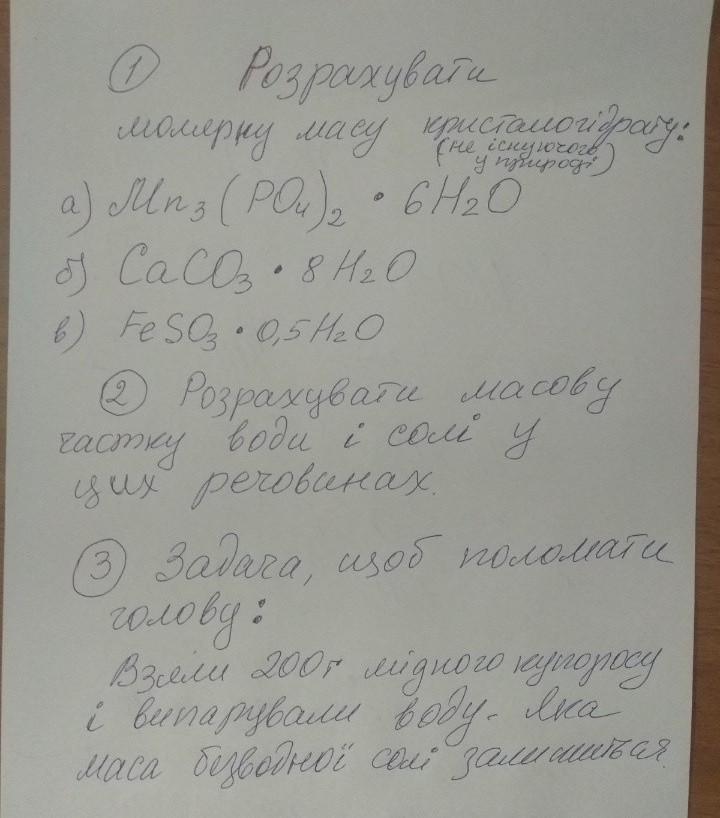 1 Розрахувати
молярну масу кристалогідрату:
(не існуючого
у природі)
а) Mn₃(PO₄)₂ · 6H₂O
б) CaCO₃ · 8H₂O
в) FeSO₃ · 0,5H₂O
2 Розрахувати масову
частку води і солі у
цих речовинах.
3 Задача, щоб поломати
голову:
Взяли 200г мідного купоросу
і випарували воду. Яка
маса безводної солі залишиться.